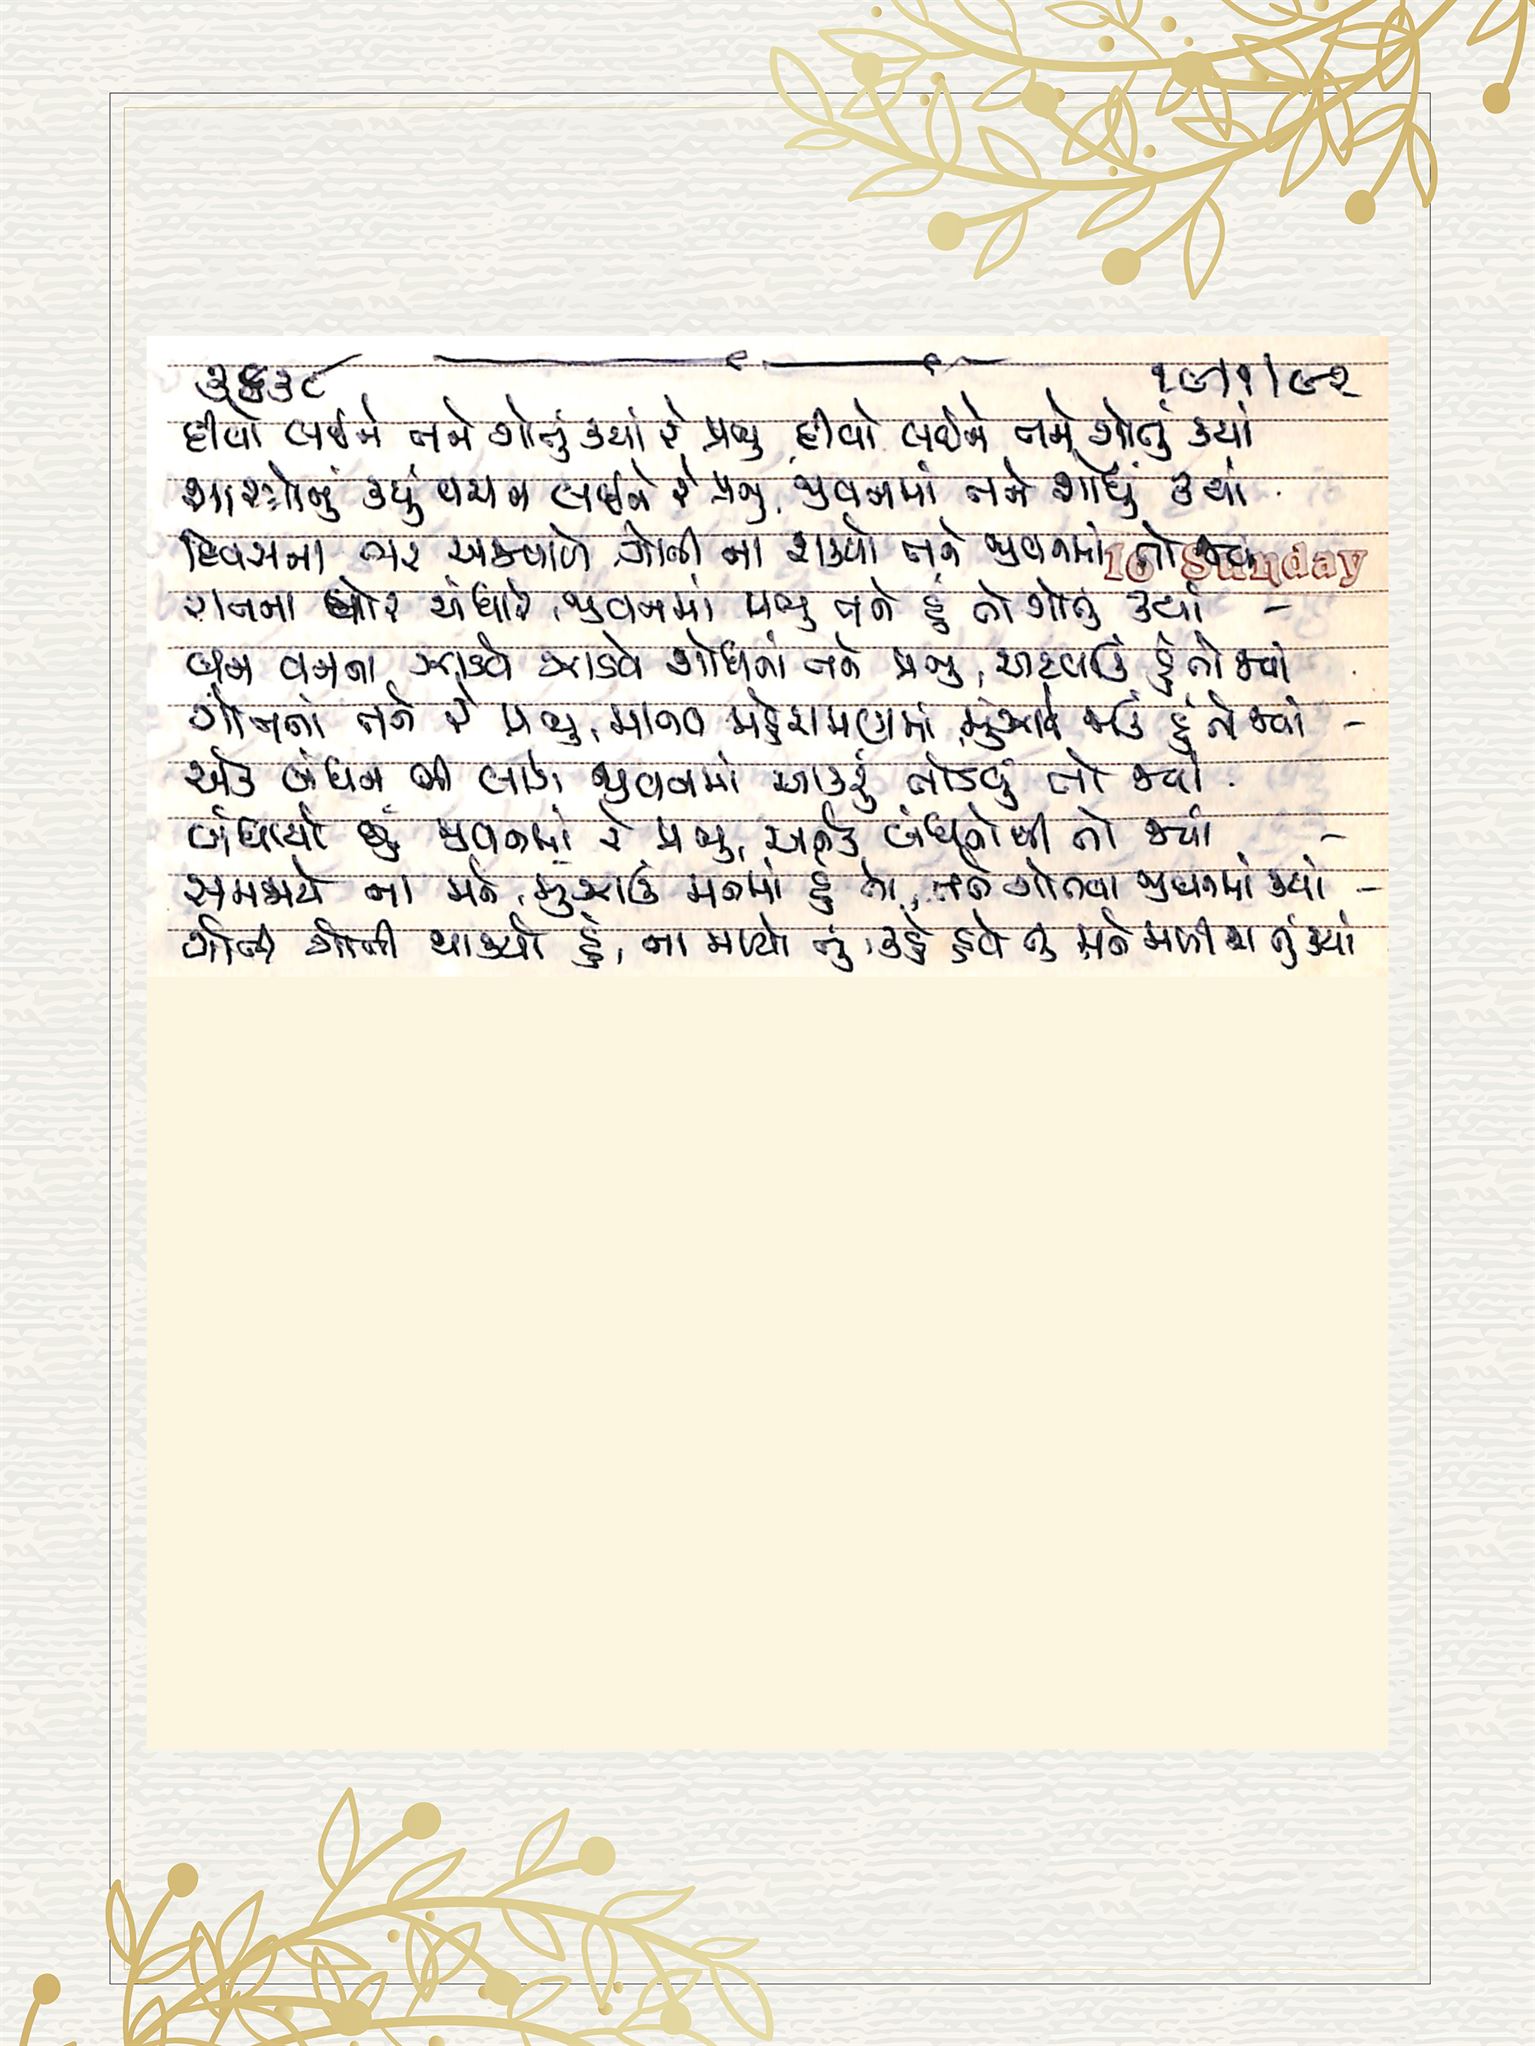 ૩૬૩૮ ૧૭/૧/૯૨
દીવો લઈને તને ગોતું ક્યાં રે પ્રભુ, દીવો લઈને તને ગોતું ક્યાં
શાસ્ત્રોનું કયું વચન લઈને રે પ્રભુ, જીવનમાં તને શોધું ક્યાં.
દિવસના ભર અજવાળે ગોતી ના શક્યો તને જીવનમાં તો જ્યાં
16 Sunday
રાતના ઘોર અંધારે, જીવનમાં પ્રભુ તને હું તો ગોતું ક્યાં –
વન વનના ઝાડવે ઝાડવે શોધતાં તને પ્રભુ, અટવાઉં હું તો જ્યાં
ગોતતાં તને રે પ્રભુ, માનવ મહેરામણમાં, મુંઝાઈ જાઉં હું તો જ્યાં –
એક બંધન ભી લાગે જીવનમાં આકરું તોડવું તો જ્યાં.
બંધાયો છું જીવનમાં રે પ્રભુ, અનેક બંધનોથી તો જ્યાં –
સમજાયે ના મને, મુંઝાઉં મનમાં હું તો, તને ગોતવા જીવનમાં ક્યાં –
ગોતી ગોતી થાક્યો હું, ના મળ્યો તું, કહે હવે તું મને મળીશ તું ક્યાં